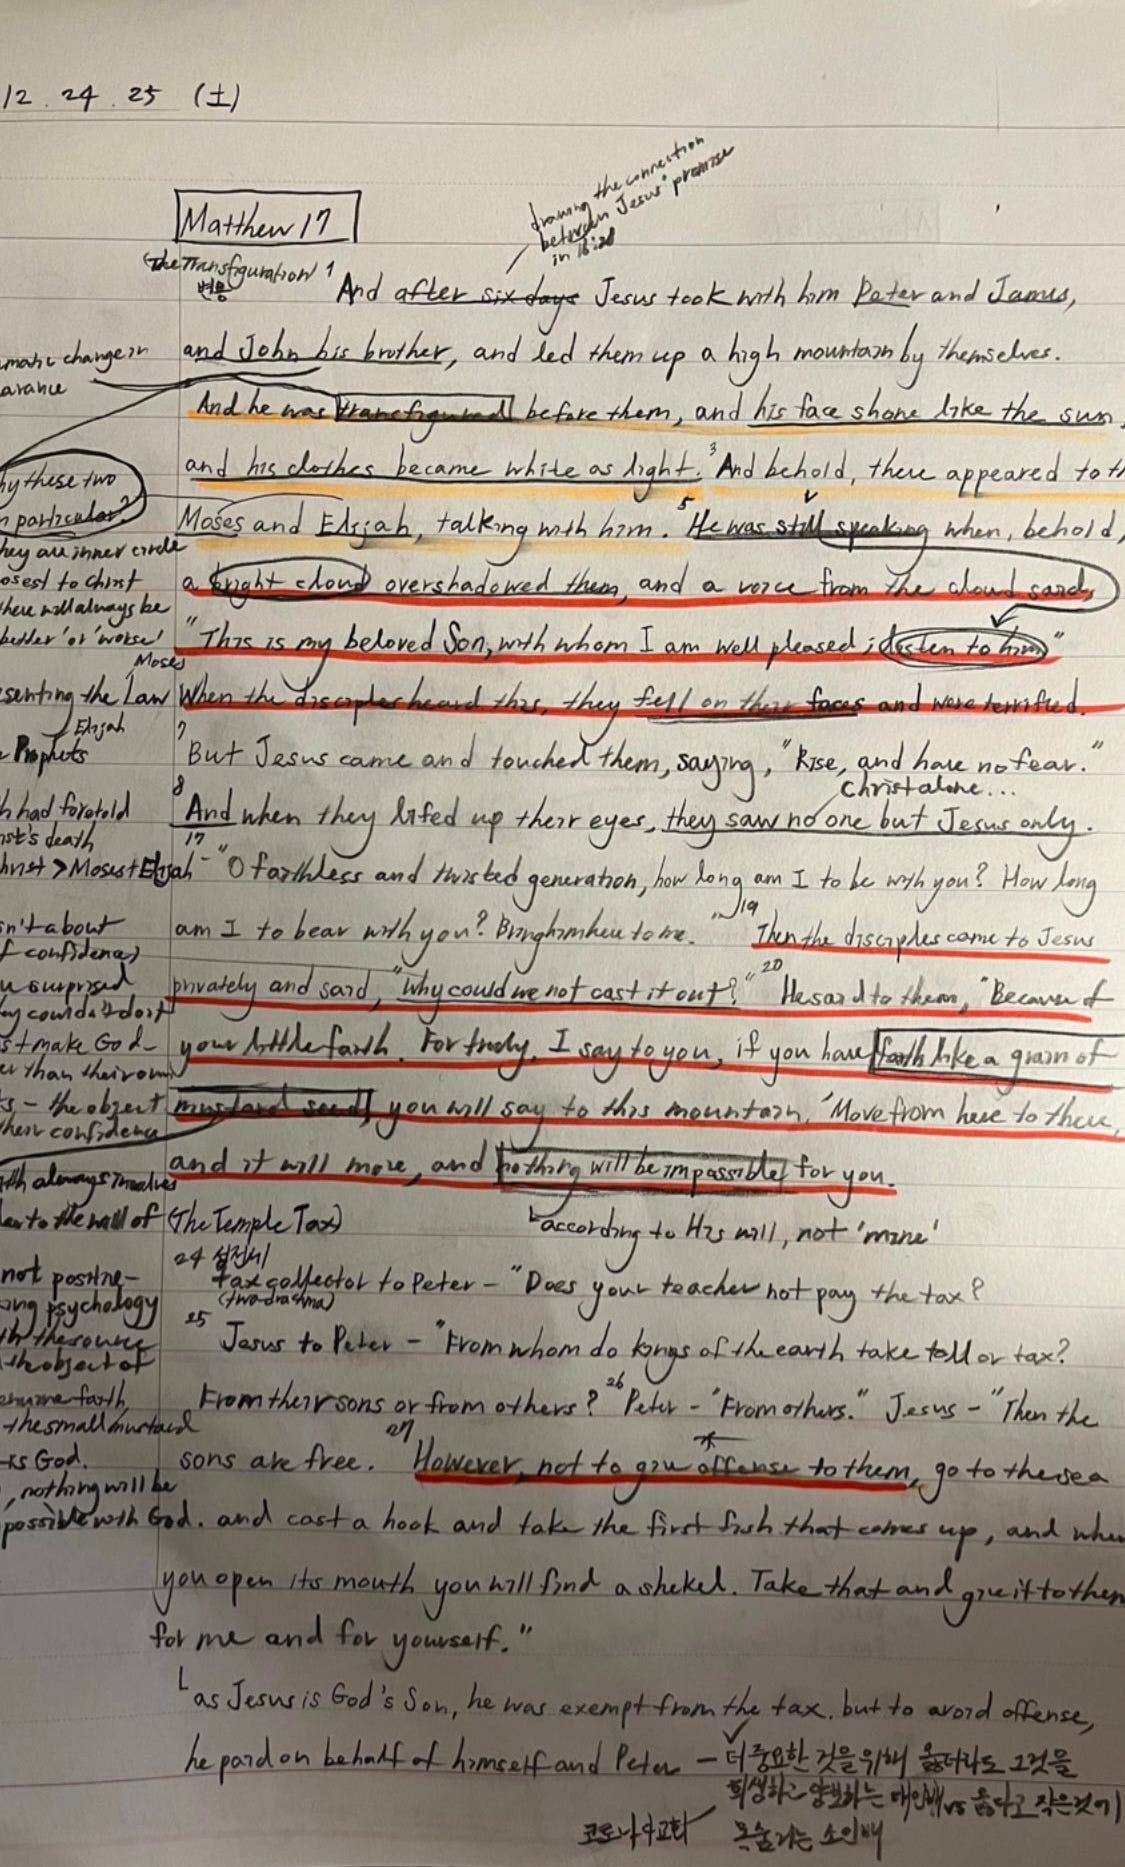 12.24.25 (土)
drawing the connection
between Jesus' promise
in 16:28
Matthew 17
(The Transfiguration)
변용
1 And after six days Jesus took with him Peter and James,
and John his brother, and led them up a high mountain by themselves.
And he was transfigured before them, and his face shone like the sun,
and his clothes became white as light. 3 And behold, there appeared to th
Moses and Elijah, talking with him. 5 He was still speaking when, behold,
a bright cloud overshadowed them, and a voice from the cloud said,
"This is my beloved Son, with whom I am well pleased; listen to him"
When the disciples heard this, they fell on their faces and were terrified.
7 But Jesus came and touched them, saying, "Rise, and have no fear."
Christ alone...
8 And when they lifed up their eyes, they saw no one but Jesus only.
17 - "O faithless and twisted generation, how long am I to be with you? How long
am I to bear with you? Bring him here to me." 19 Then the disciples came to Jesus
privately and said, "Why could we not cast it out?" 20 He said to them, "Because of
your little faith. For truly, I say to you, if you have faith like a grain of
mustard seed, you will say to this mountain, 'Move from here to there,
and it will move, and nothing will be impossible for you.
according to His will, not 'mine'
(The Temple Tax)
성전세
24 tax collector to Peter - "Does your teacher not pay the tax?
(two-drachma)
25 Jesus to Peter - "From whom do kings of the earth take toll or tax?
From their sons or from others? 26 Peter - "From others." Jesus - "Then the
sons are free. 27 However, not to give offense to them, go to the sea
and cast a hook and take the first fish that comes up, and when
you open its mouth you will find a shekel. Take that and give it to them
for me and for yourself."
as Jesus is God's Son, he was exempt from the tax. but to avoid offense,
he paid on behalf of himself and Peter - 더 중요한 것을 위해 옳더라도 그것을
희생하고 양보하는 대인배 vs 옳다고 작은것에
목숨거는 소인배
코로나와 교회
matic change in
arance
hy these two
n particular?
hey are inner circle
osest to Christ
there will always be
better' or 'worse'
Moses
senting the Law
Elijah
Prophets
h had foretold
ist's death
hrist > Moses + Elijah
sn't about
f confidence)
u surprised
ey couldn't do it
st make God
er than their own
ts, - the object
their confidence
ith always involves
to the will of
not positive-
ing psychology
the source
the object of
genuine faith,
the small mustard
ks God.
, nothing will be
possible with God.